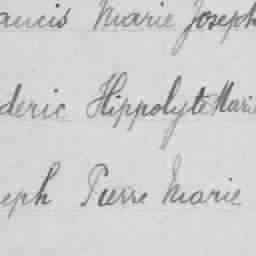 ancis Marie Joseph
deric Hippolyte Marie
eph Pierre Marie